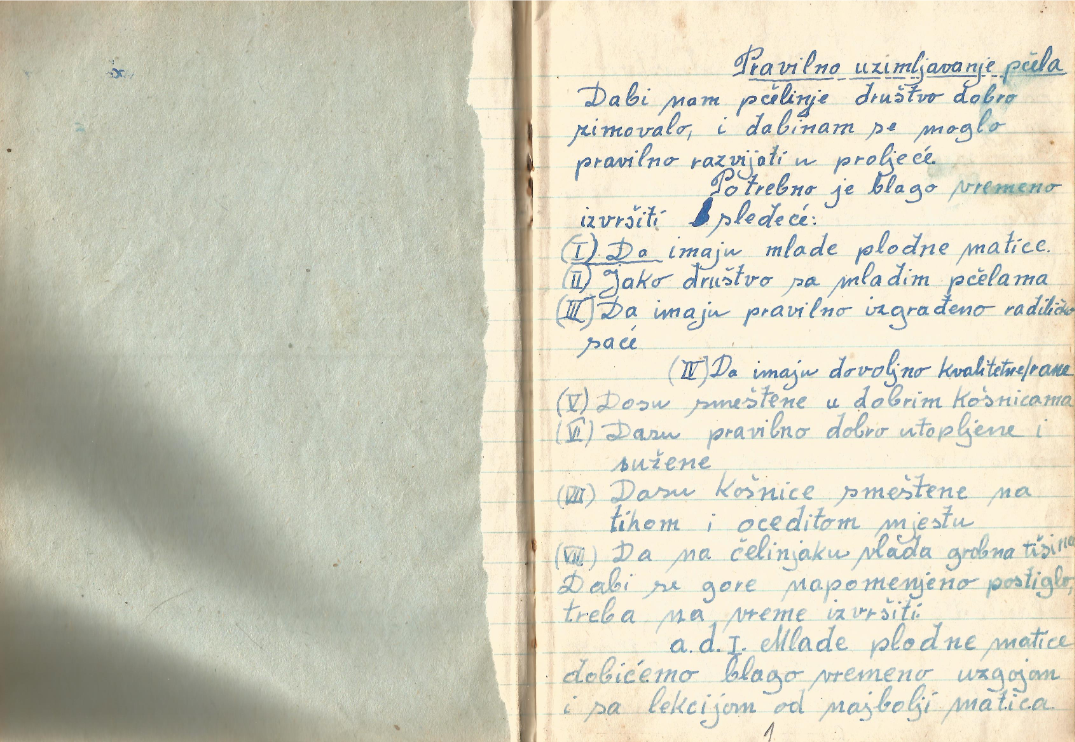 Pravilno uzimljavanje pčela
Dabi nam pčelinje društvo dobro
zimovalo, i dabinam se moglo
pravilno razvijati u proljeće.
Potrebno je blago vremeno
izvršiti sledeće:
(I) Da imaju mlade plodne matice.
(II) Jako društvo sa mladim pčelama
(III) Da imaju pravilno izgrađeno radiličko
saće
(IV) Da imaju dovoljno kvalitetne hrane
(V) Dasu smeštene u dobrim košnicama
(VI) Dasu pravilno dobro utopljene i
sužene
(VII) Dasu košnice smeštene na
tihom i oceditom mjestu
(VIII) Da na čelinjaku vlada grobna tišina
Dabi se gore napomenjeno postiglo,
treba na vreme izvršiti:
a.d.I. Mlade plodne matice
dobićemo blago vremeno uzgojom
i sa lekcijom od najbolji matica.
1